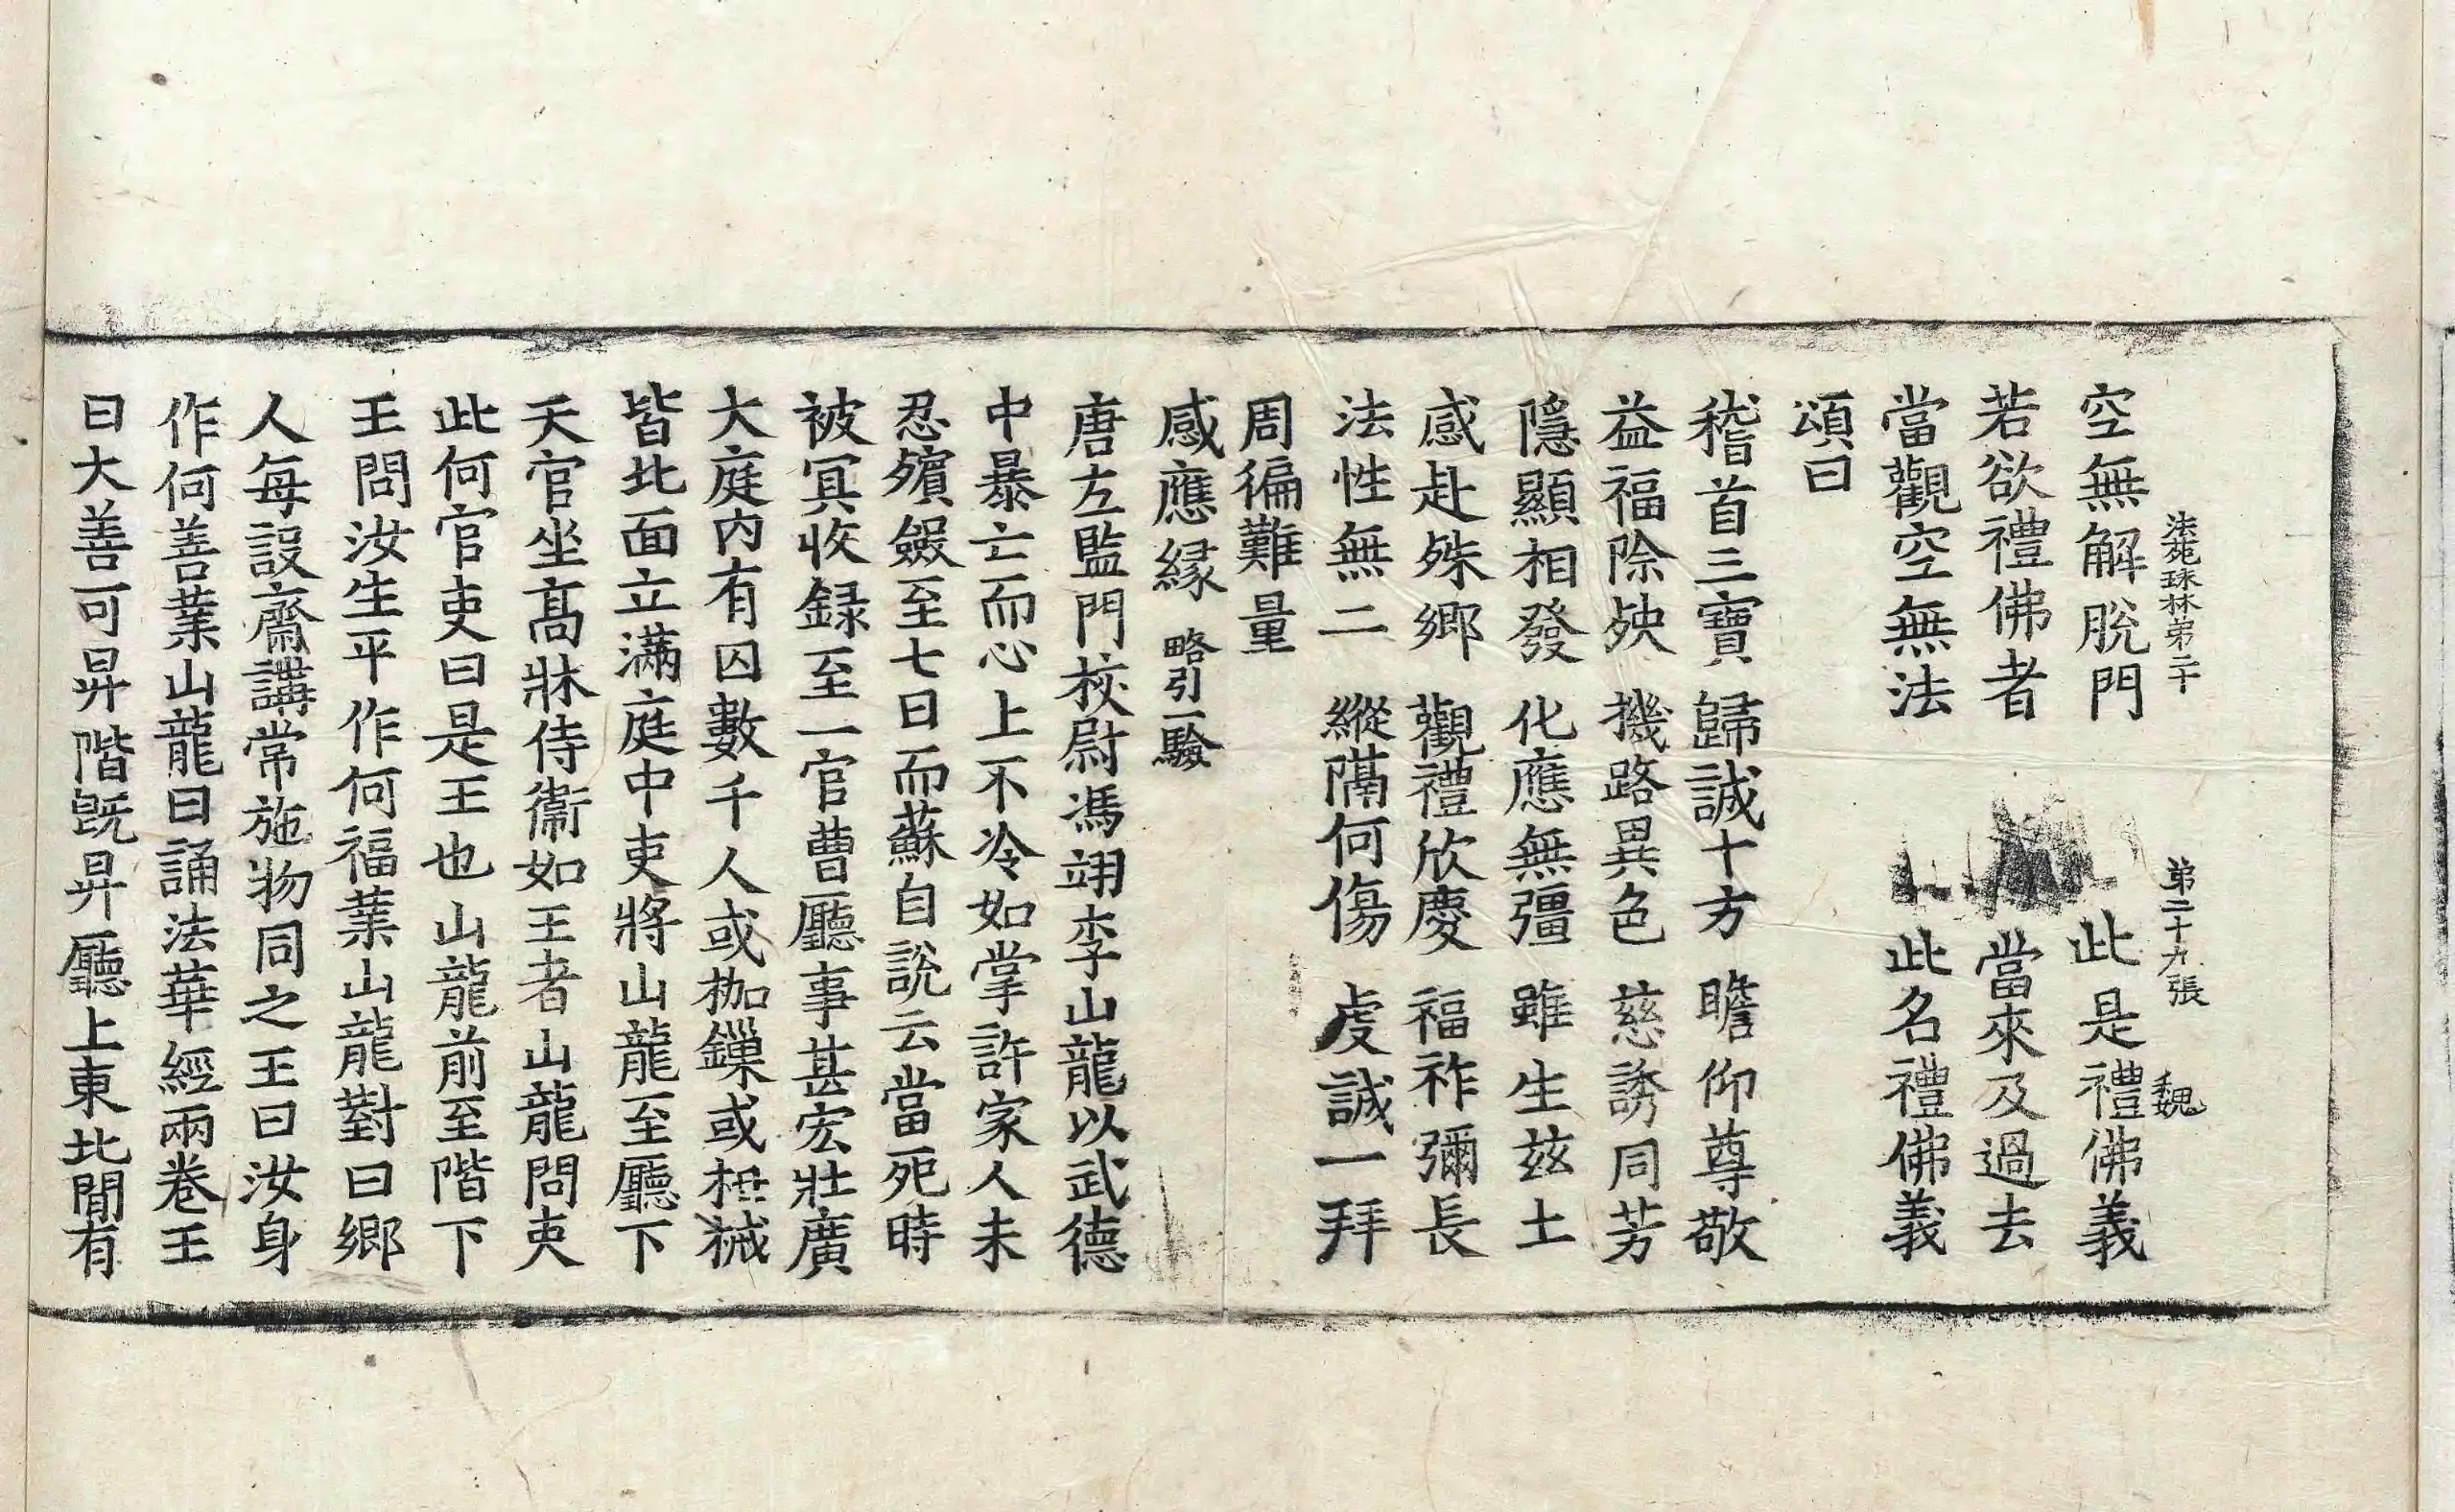 法苑珠林第二十 第二十九張 魏
空無解脫門 此是禮佛義
若欲禮佛者 當來及過去
當觀空無法 此名禮佛義
頌曰
稽首三寶 歸誠十方 瞻仰尊敬
益福除殃 機路異色 慈誘同芳
隱顯相發 化應無彊 雖生茲土
感赴殊鄉 觀禮欣慶 福祚彌長
法性無二 縱隔何傷 虔誠一拜
周徧難量
感應緣 略引一驗
唐左監門校尉馮翊李山龍以武德
中暴亡而心上不冷如掌許家人未
忍殯殮至七日而蘇自說云當死時
被冥收録至一官曹廳事甚宏壯廣
大庭内有囚數千人或枷鏁或杻械
皆北面立滿庭中吏將山龍至廳下
天官坐髙牀侍衞如王者山龍問吏
此何官吏曰是王也山龍前至階下
王問汝生平作何福業山龍對曰鄉
人每設齋講常施物同之王曰汝身
作何善業山龍曰誦法華經兩卷王
曰大善可昇階旣昇廳上東北間有